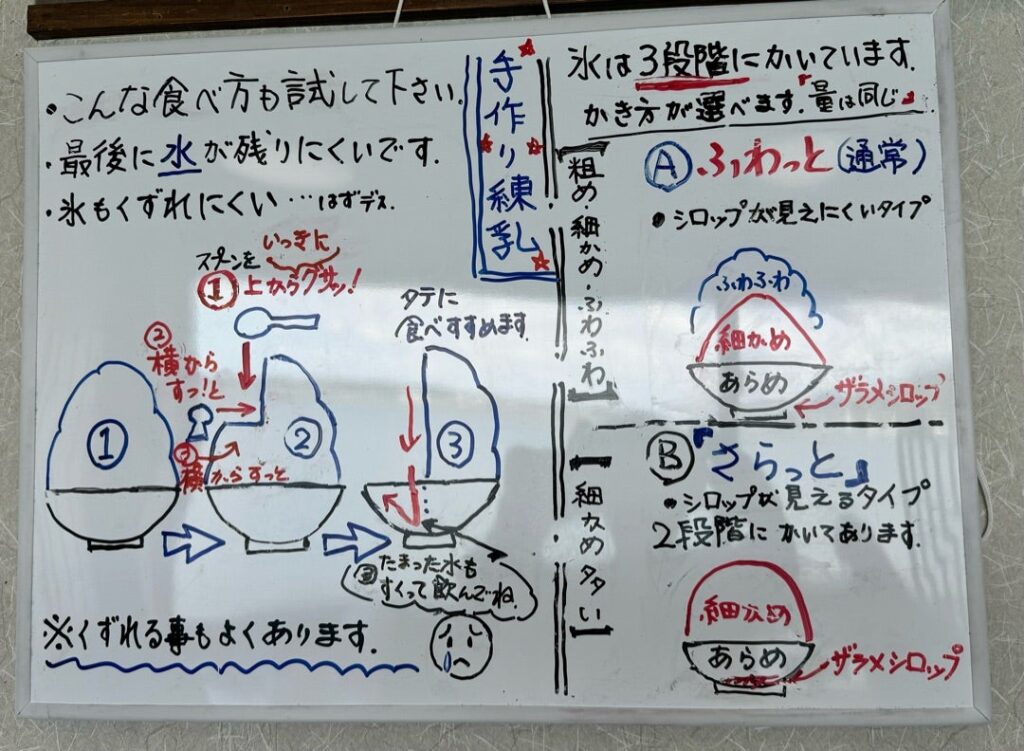 ・こんな食べ方も試して下さい.
・最後に水が残りにくいです.
・氷もくずれにくい…はずデス.
スプーンを
いっきに
①上からグサッ!
②
横から
すっ!と
②横からすっと
①
②
タテに
食べすすめます.
③
③たまった水も
すくって飲んでね.
※くずれる事もよくあります.
手作り練乳
氷は3段階にかいています.
かき方が選べます.『量は同じ』
【粗め・細かめ・ふわふわ】
Ⓐふわっと(通常)
•シロップが見えにくいタイプ
ふわふわ
細かめ
あらめ
ザラメシロップ
【細かめ多い】
Ⓑ『さらっと』
•シロップが見えるタイプ
2段階にかいてあります.
細かめ
あらめ
ザラメシロップ